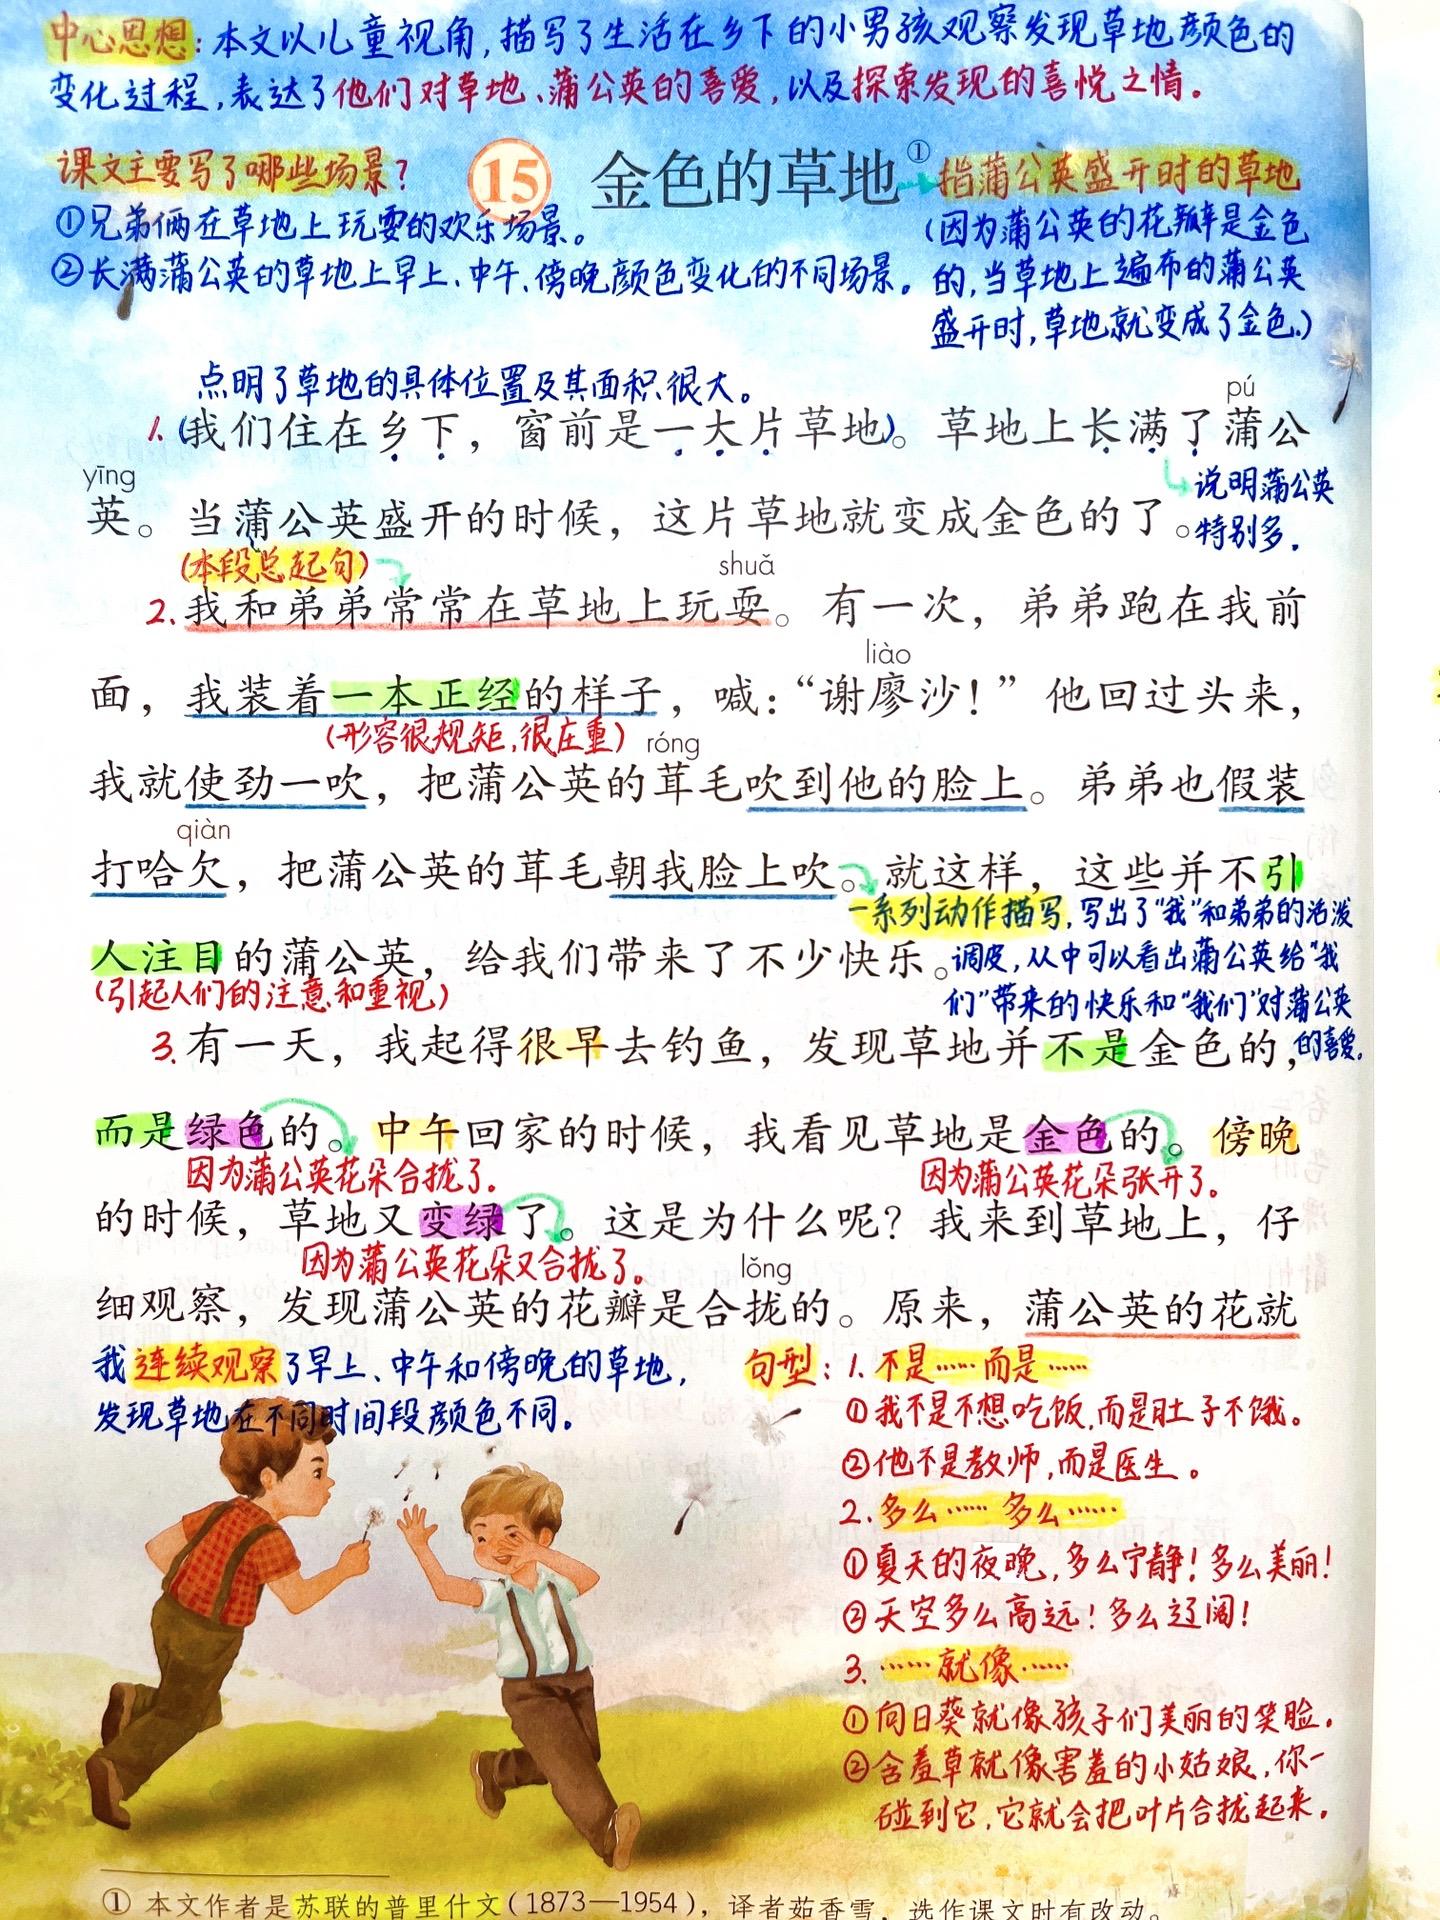 中心思想：本文以儿童视角，描写了生活在乡下的小男孩观察发现草地颜色的
变化过程，表达了他们对草地、蒲公英的喜爱，以及探索发现的喜悦之情。
课文主要写了哪些场景？
①兄弟俩在草地上玩耍的欢乐场景。
②长满蒲公英的草地上早上、中午、傍晚颜色变化的不同场景。
15 金色的草地①
指蒲公英盛开时的草地
（因为蒲公英的花瓣是金色
的，当草地上遍布的蒲公英
盛开时，草地就变成了金色。）
点明了草地的具体位置及其面积很大。
pú
1.（我们住在乡下，窗前是一大片草地）。草地上长满了蒲公
yīng
说明蒲公英
特别多。
英。当蒲公英盛开的时候，这片草地就变成金色的了。
（本段总起句）
shuǎ
2.我和弟弟常常在草地上玩耍。有一次，弟弟跑在我前
liào
面，我装着一本正经的样子，喊：“谢廖沙！”他回过头来，
（形容很规矩，很庄重）
róng
我就使劲一吹，把蒲公英的茸毛吹到他的脸上。弟弟也假装
qiàn
打哈欠，把蒲公英的茸毛朝我脸上吹。就这样，这些并不引
一系列动作描写，写出了“我”和弟弟的活泼
调皮，从中可以看出蒲公英给“我
们”带来的快乐和“我们”对蒲公英
的喜爱。
人注目的蒲公英，给我们带来了不少快乐。
（引起人们的注意和重视）
3.有一天，我起得很早去钓鱼，发现草地并不是金色的，
而是绿色的。中午回家的时候，我看见草地是金色的。傍晚
因为蒲公英花朵合拢了。
因为蒲公英花朵张开了。
的时候，草地又变绿了。这是为什么呢？我来到草地上，仔
因为蒲公英花朵又合拢了。
lǒng
细观察，发现蒲公英的花瓣是合拢的。原来，蒲公英的花就
我连续观察了早上、中午和傍晚的草地，
发现草地在不同时间段颜色不同。
句型：1.不是……而是……
①我不是不想吃饭，而是肚子不饿。
②他不是教师，而是医生。
2.多么……多么……
①夏天的夜晚，多么宁静！多么美丽！
②天空多么高远！多么辽阔！
3.……就像……
①向日葵就像孩子们美丽的笑脸。
②含羞草就像害羞的小姑娘，你一
碰到它，它就会把叶片合拢起来。
①本文作者是苏联的普里什文（1873—1954），译者茹香雪，选作课文时有改动。